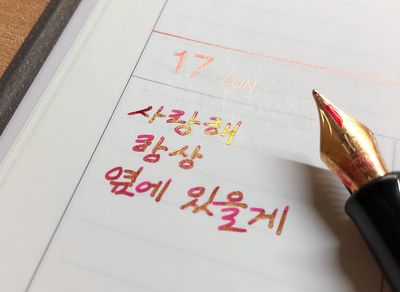 17 SUN
사랑해
항상
옆에 있을게